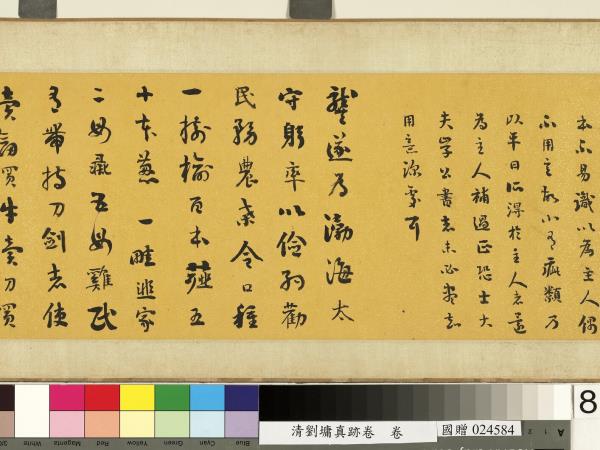 本不易識以為主人偶
不用意故小有疵纇乃
以平日所得於主人者還
為主人補過正恐士大
夫學公書者未必盡知
用意深處耳
龔遂為渤海太
守躬率以儉約勸
民務農桒令口種
一樹榆百本薤五
十本蔥一畦韭家
二母彘五母雞民
有帶持刀劍者使
賣劍買牛賣刀買
3/Color White Magenta Red Yellow Green Cyan Blue
清劉墉真跡卷 卷
國贈 024584
8
A 1 2